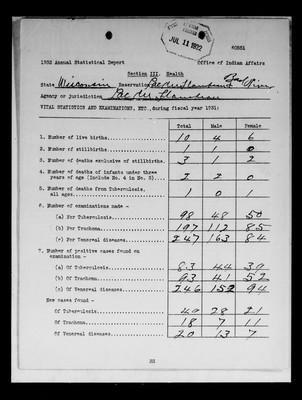 JUL 11 1932
40881
1932 Annual Statistical Report Office of Indian Affairs
Section III. Health
State Wisconsin Reservation Lac du Flambeau & Bad River
Agency or jurisdiction Lac du Flambeau
VITAL STATISTICS AND EXAMINATIONS, ETC., during fiscal year 1931:
Total Male Female
1. Number of live births 10 4 6
2. Number of stillbirths 1 1 0
3. Number of deaths exclusive of stillbirths 3 1 2
4. Number of deaths of infants under three
years of age (Include No. 4 in No. 3) 2 2 0
5. Number of deaths from Tuberculosis,
all ages 1 0
6. Number of examinations made -
(a) For Tuberculosis 98 48 50
(b) For Trachoma 197 112 85
(c) For Venereal diseases 247 163 84
7. Number of positive cases found on
examination -
(a) Of Tuberculosis 83 44 39
(b) Of Trachoma 93 41 52
(c) Of Venereal diseases 246 152 94
New cases found -
Of Tuberculosis 49 28 21
Of Trachoma 18 7 11
Of Venereal diseases 20 13 7